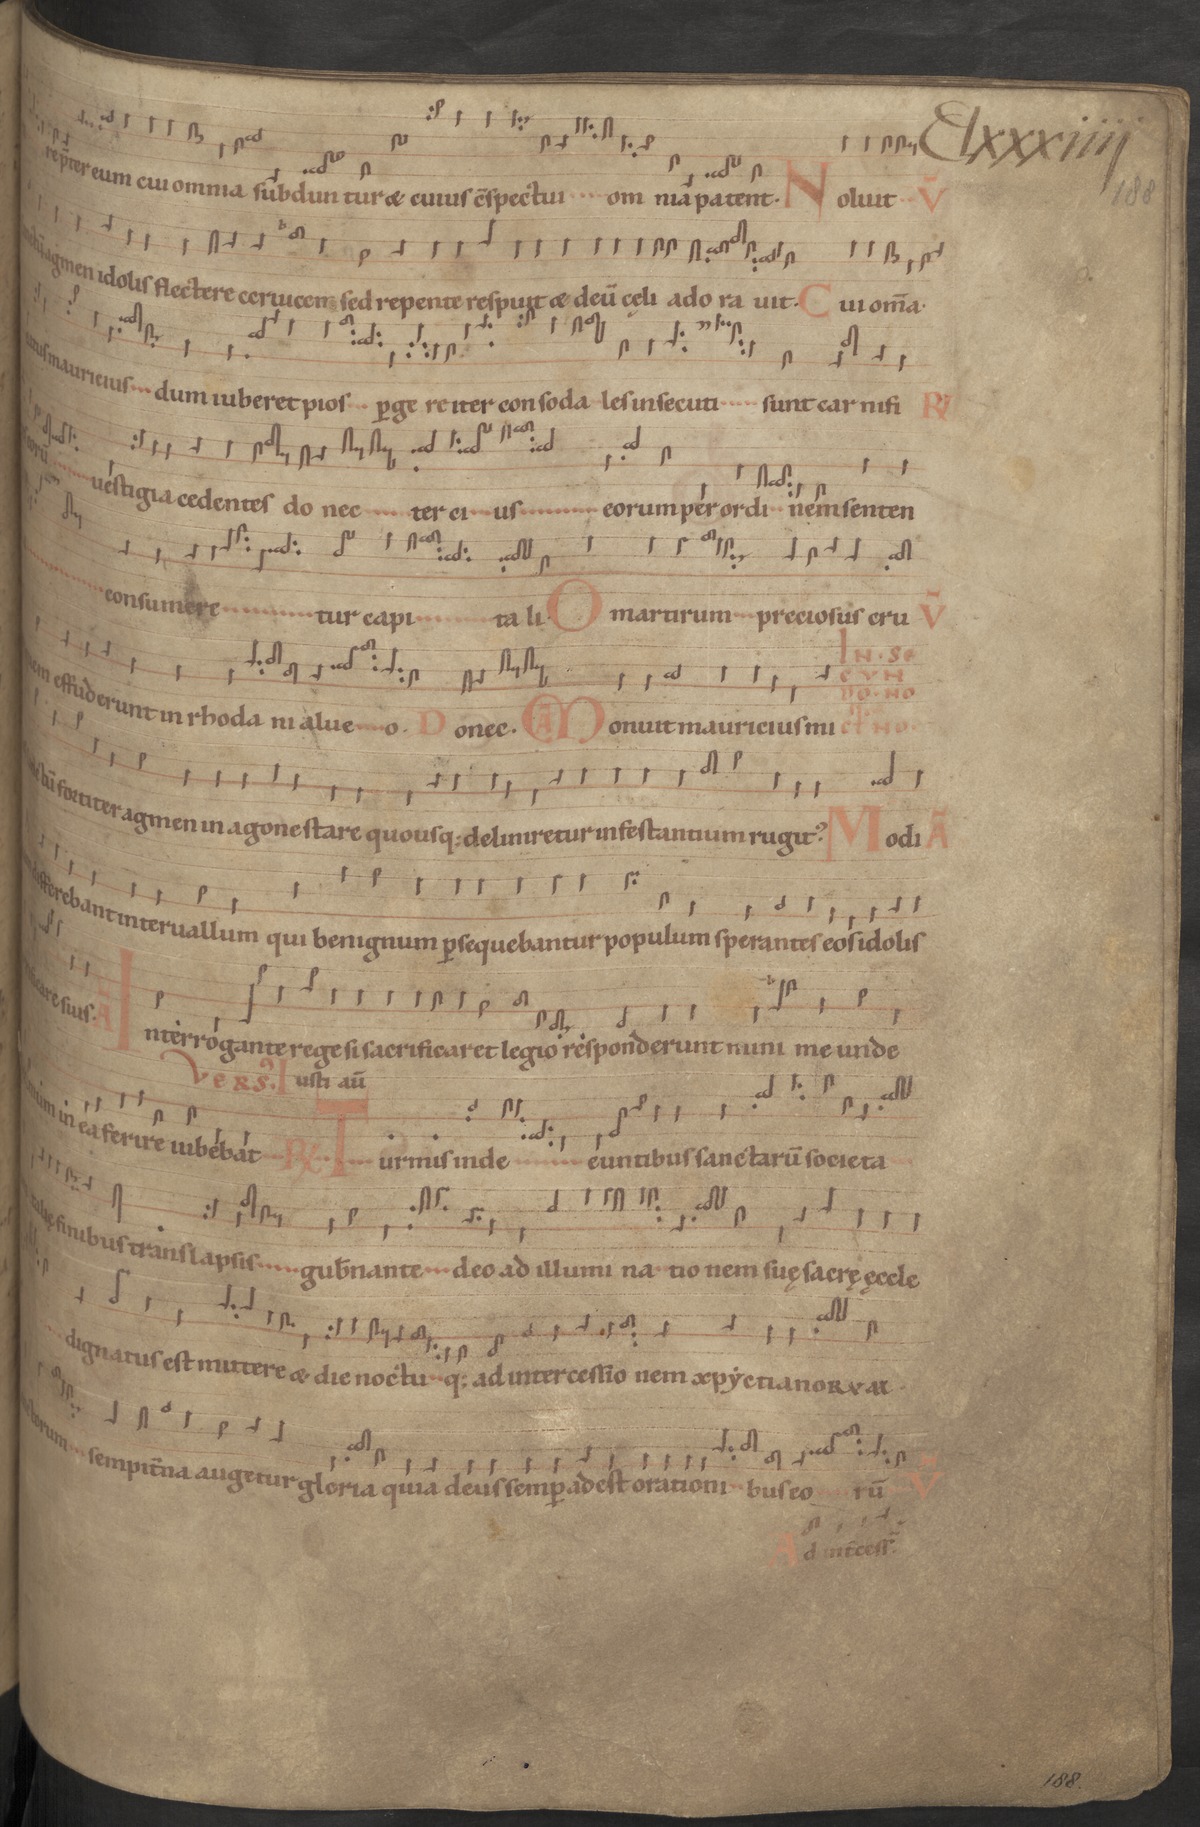 Clxxxiiij
188
repēter eum cui omnia subduntur & cuius c̄spectui om niā patent. Noluit V̄
agmen idolis flectere ceruicem sed repente respuit & deū cęli ado ra uit. Cui om̄a.
mauricius dum iuberet pios ꝑge re iter con soda les insecuti sunt carnifi R̸
uestigia cedentes do nec ter ei us eorum per ordi nem senten
consumere tur capi ta li O martirum preciosus cru V̄
effuderunt in rhoda ni alue o. Donec. Ā Monuit mauricius mi
IN. SE
CVN
DO. NO
ct NO
fortiter agmen in agone stare quousq; deliniretur infestantium rugit? Modi Ā
differebant interuallum qui benignum ꝑsequebantur populum sperantes eos idolis
suis. Ā Interrogante rege si sacrificaret legio responderunt nuni me unde
VERS. Iusti aū
in ea ferire iubebat R̸ Turmis inde euntibus sanctarū societa
finibus translapsis gub̄nante deo ad illumi na tio nem suę sacrę ęccle
dignatus est mittere & die noctu q; ad intercessio nem xp̄ictianorum
sempit̄na augetur gloria quia deus semꝑ adest orationi bus eo rū V̄
Ad int̄cess̄.
188.